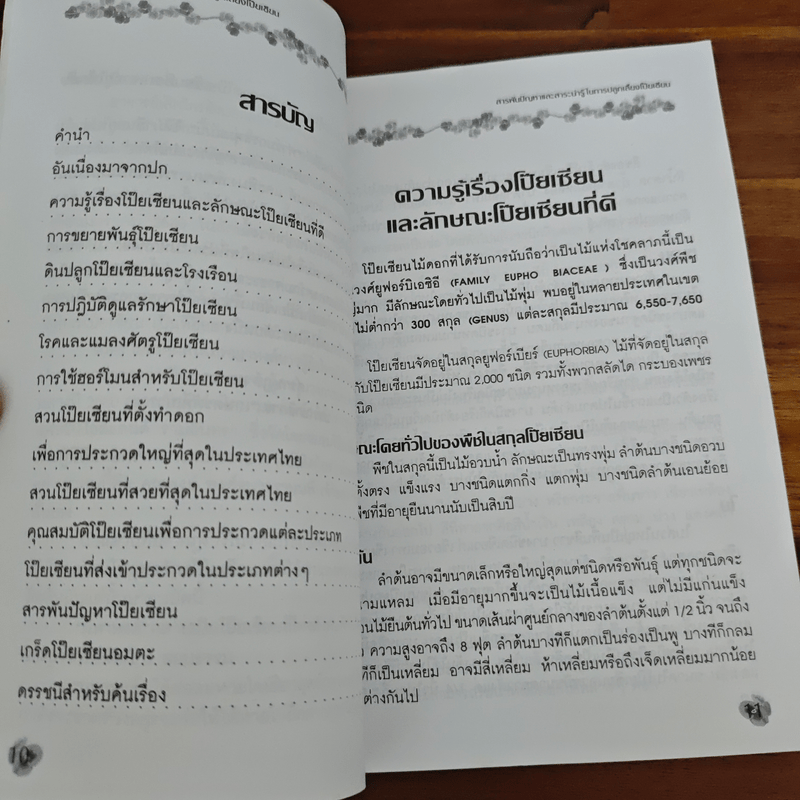 งโป๊ยเซียน
สารบัญ
คำนำ
อันเนื่องมาจากปก
ความรู้เรื่องโป๊ยเซียนและลักษณะโป๊ยเซียนที่ดี
การขยายพันธุ์โป๊ยเซียน
ดินปลูกโป๊ยเซียนและโรงเรือน
การปฏิบัติดูแลรักษาโป๊ยเซียน
โรคและแมลงศัตรูโป๊ยเซียน
การใช้ฮอร์โมนสำหรับโป๊ยเซียน
สวนโป๊ยเซียนที่ตั้งทำดอก
เพื่อการประกวดใหญ่ที่สุดในประเทศไทย
สวนโป๊ยเซียนที่สวยที่สุดในประเทศไทย
คุณสมบัติโป๊ยเซียนเพื่อการประกวดแต่ละประเภท
โป๊ยเซียนที่ส่งเข้าประกวดในประเภทต่างๆ
สารพันปัญหาโป๊ยเซียน
เกร็ดโป๊ยเซียนอมตะ
ดรรชนีสำหรับค้นเรื่อง
10
สารพันปัญหาและสาระน่ารู้ในการปลูกเลี้ยงโป๊ยเซียน
ความรู้เรื่องโป๊ยเซียน
และลักษณะโป๊ยเซียนที่ดี
โป๊ยเซียนไม้ดอกที่ได้รับการนับถือว่าเป็นไม้แห่งโชคลาภนี้เป็น
วงศ์ยูฟอร์บิเอซิอี (FAMILY EUPHO BIACEAE ) ซึ่งเป็นวงศ์พืช
ญ่มาก มีลักษณะโดยทั่วไปเป็นไม้พุ่ม พบอยู่ในหลายประเทศในเขต
ไม่ต่ำกว่า 300 สกุล (GENUS) แต่ละสกุลมีประมาณ 6,550-7,650
โป๊ยเซียนจัดอยู่ในสกุลยูฟอร์เบียร์ (EUPHORBIA) ไม้ที่จัดอยู่ในสกุล
กับโป๊ยเซียนมีประมาณ 2,000 ชนิด รวมทั้งพวกสลัดได กระบองเพชร
นิด
ณะโดยทั่วไปของพืชในสกุลโป๊ยเซียน
พืชในสกุลนี้เป็นไม้อวบน้ำ ลักษณะเป็นทรงพุ่ม ลำต้นบางชนิดอวบ
ตั้งตรง แข็งแรง บางชนิดแตกกิ่ง แตกพุ่ม บางชนิดลำต้นเอนย้อย
พืชที่มีอายุยืนนานนับเป็นสิบปี
ต้น
ลำต้นอาจมีขนาดเล็กหรือใหญ่สุดแต่ชนิดหรือพันธุ์ แต่ทุกชนิดจะ
นามแหลม เมื่อมีอายุมากขึ้นจะเป็นไม้เนื้อแข็ง แต่ไม่มีแก่นแข็ง
อนไม้ยืนต้นทั่วไป ขนาดเส้นผ่าศูนย์กลางของลำต้นตั้งแต่ 1/2 นิ้ว จนถึง
ว ความสูงอาจถึง 8 ฟุต ลำต้นบางทีก็แตกเป็นร่องเป็นพู บางทีก็กลม
ทีก็เป็นเหลี่ยม อาจมีสี่เหลี่ยม ห้าเหลี่ยมหรือถึงเจ็ดเหลี่ยมมากน้อย
ต่างกันไป